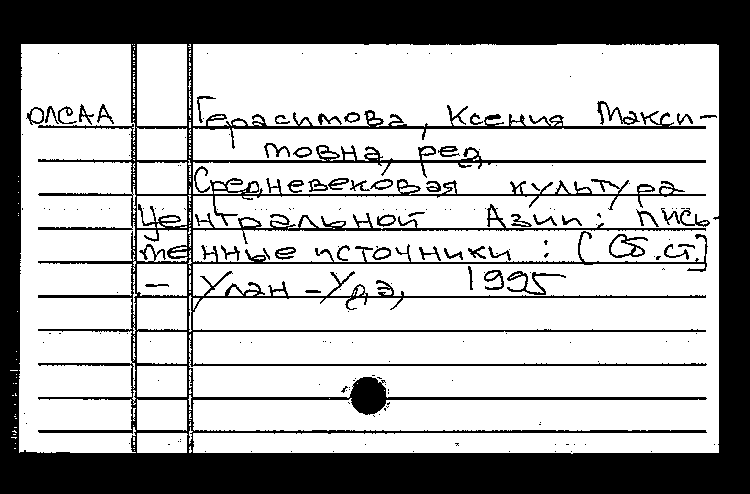 ОЛСАА Герасимова, Ксения Макси-
мовна, ред.
Средневековая культура
Центральной Азии: пись-
менные источники: [Сб.ст.]
.- Улан-Удэ, 1995